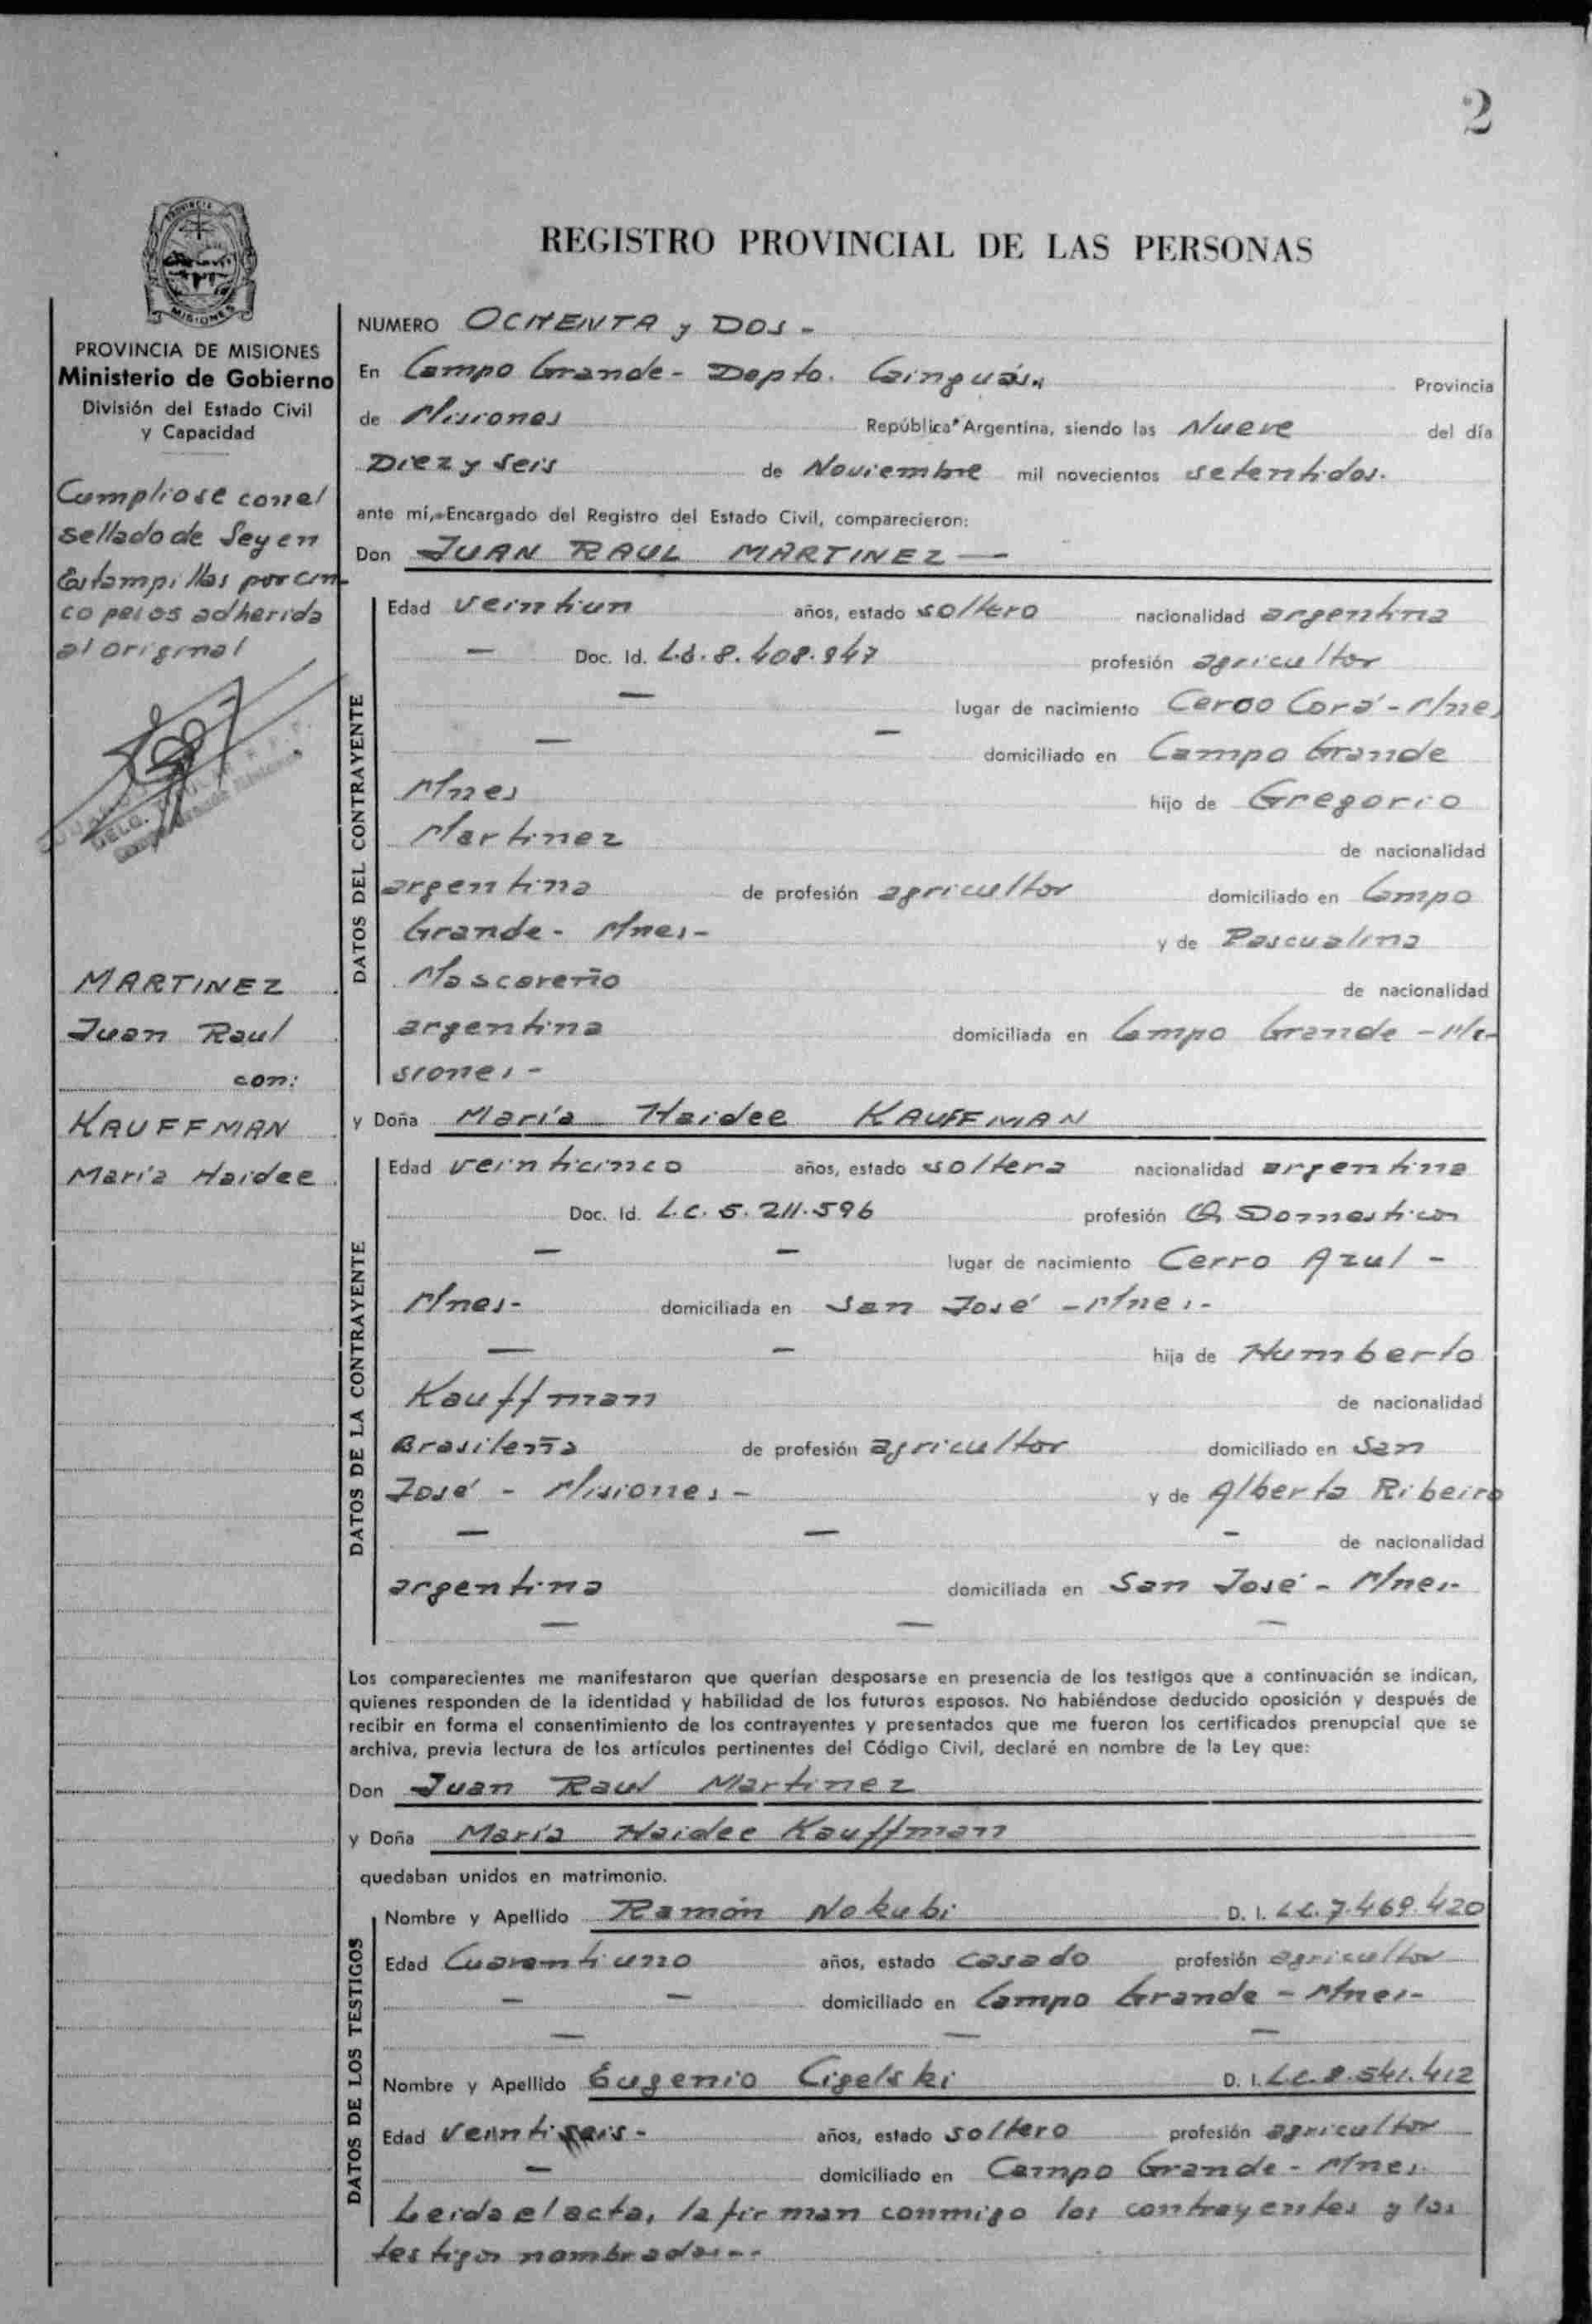 2
REGISTRO PROVINCIAL DE LAS PERSONAS
PROVINCIA
MISIONES
PROVINCIA DE MISIONES
Ministerio de Gobierno
División del Estado Civil
y Capacidad
Cumpliose con el
sellado de Ley en
Estampillas por cin-
co pesos adherida
al original
MARTINEZ
Juan Raul
con:
KAUFFMAN
María Haidee
NUMERO OCHENTA y DOS -
En Campo Grande - Depto. Cainguás.. Provincia
de Misiones República Argentina, siendo las Nueve del día
Diez y seis de Noviembre mil novecientos setentidos.
ante mí, Encargado del Registro del Estado Civil, comparecieron:
Don JUAN RAUL MARTINEZ —
DATOS DEL CONTRAYENTE
Edad veintiun años, estado soltero nacionalidad argentina
— Doc. Id. 8.408.947 profesión agricultor
— lugar de nacimiento Cerro Corá - Mnes
— — domiciliado en Campo Grande
Mnes hijo de Gregorio
Martinez de nacionalidad
argentina de profesión agricultor domiciliado en Campo
Grande - Mnes - y de Pascualina
Mascareño de nacionalidad
argentina domiciliada en Campo Grande - Mi-
siones -
y Doña María Haidee KAUFFMAN
DATOS DE LA CONTRAYENTE
Edad veinticinco años, estado soltera nacionalidad argentina
Doc. Id. L.C. 5.211.596 profesión Q. Domesticos
— — lugar de nacimiento Cerro Azul -
Mnes - domiciliada en San José - Mnes -
— — hija de Humberto
Kauffman de nacionalidad
Brasileña de profesión agricultor domiciliado en San
José - Misiones - y de Alberta Ribeiro
— — - de nacionalidad
argentina domiciliada en San José - Mnes -
— — —
Los comparecientes me manifestaron que querían desposarse en presencia de los testigos que a continuación se indican,
quienes responden de la identidad y habilidad de los futuros esposos. No habiéndose deducido oposición y después de
recibir en forma el consentimiento de los contrayentes y presentados que me fueron los certificados prenupcial que se
archiva, previa lectura de los artículos pertinentes del Código Civil, declaré en nombre de la Ley que:
Don Juan Raul Martinez
y Doña María Haidee Kauffman
quedaban unidos en matrimonio.
DATOS DE LOS TESTIGOS
Nombre y Apellido Ramón Nokubi D. I. 7.469.420
Edad Cuarentiuno años, estado casado profesión agricultor
— — domiciliado en Campo Grande - Mnes -
— — —
Nombre y Apellido Eugenio Cigelski D. I. 8.541.412
Edad veintiseis - años, estado soltero profesión agricultor
— domiciliado en Campo Grande - Mnes.
Leida el acta, la firman conmigo los contrayentes y los
testigos nombrados - -